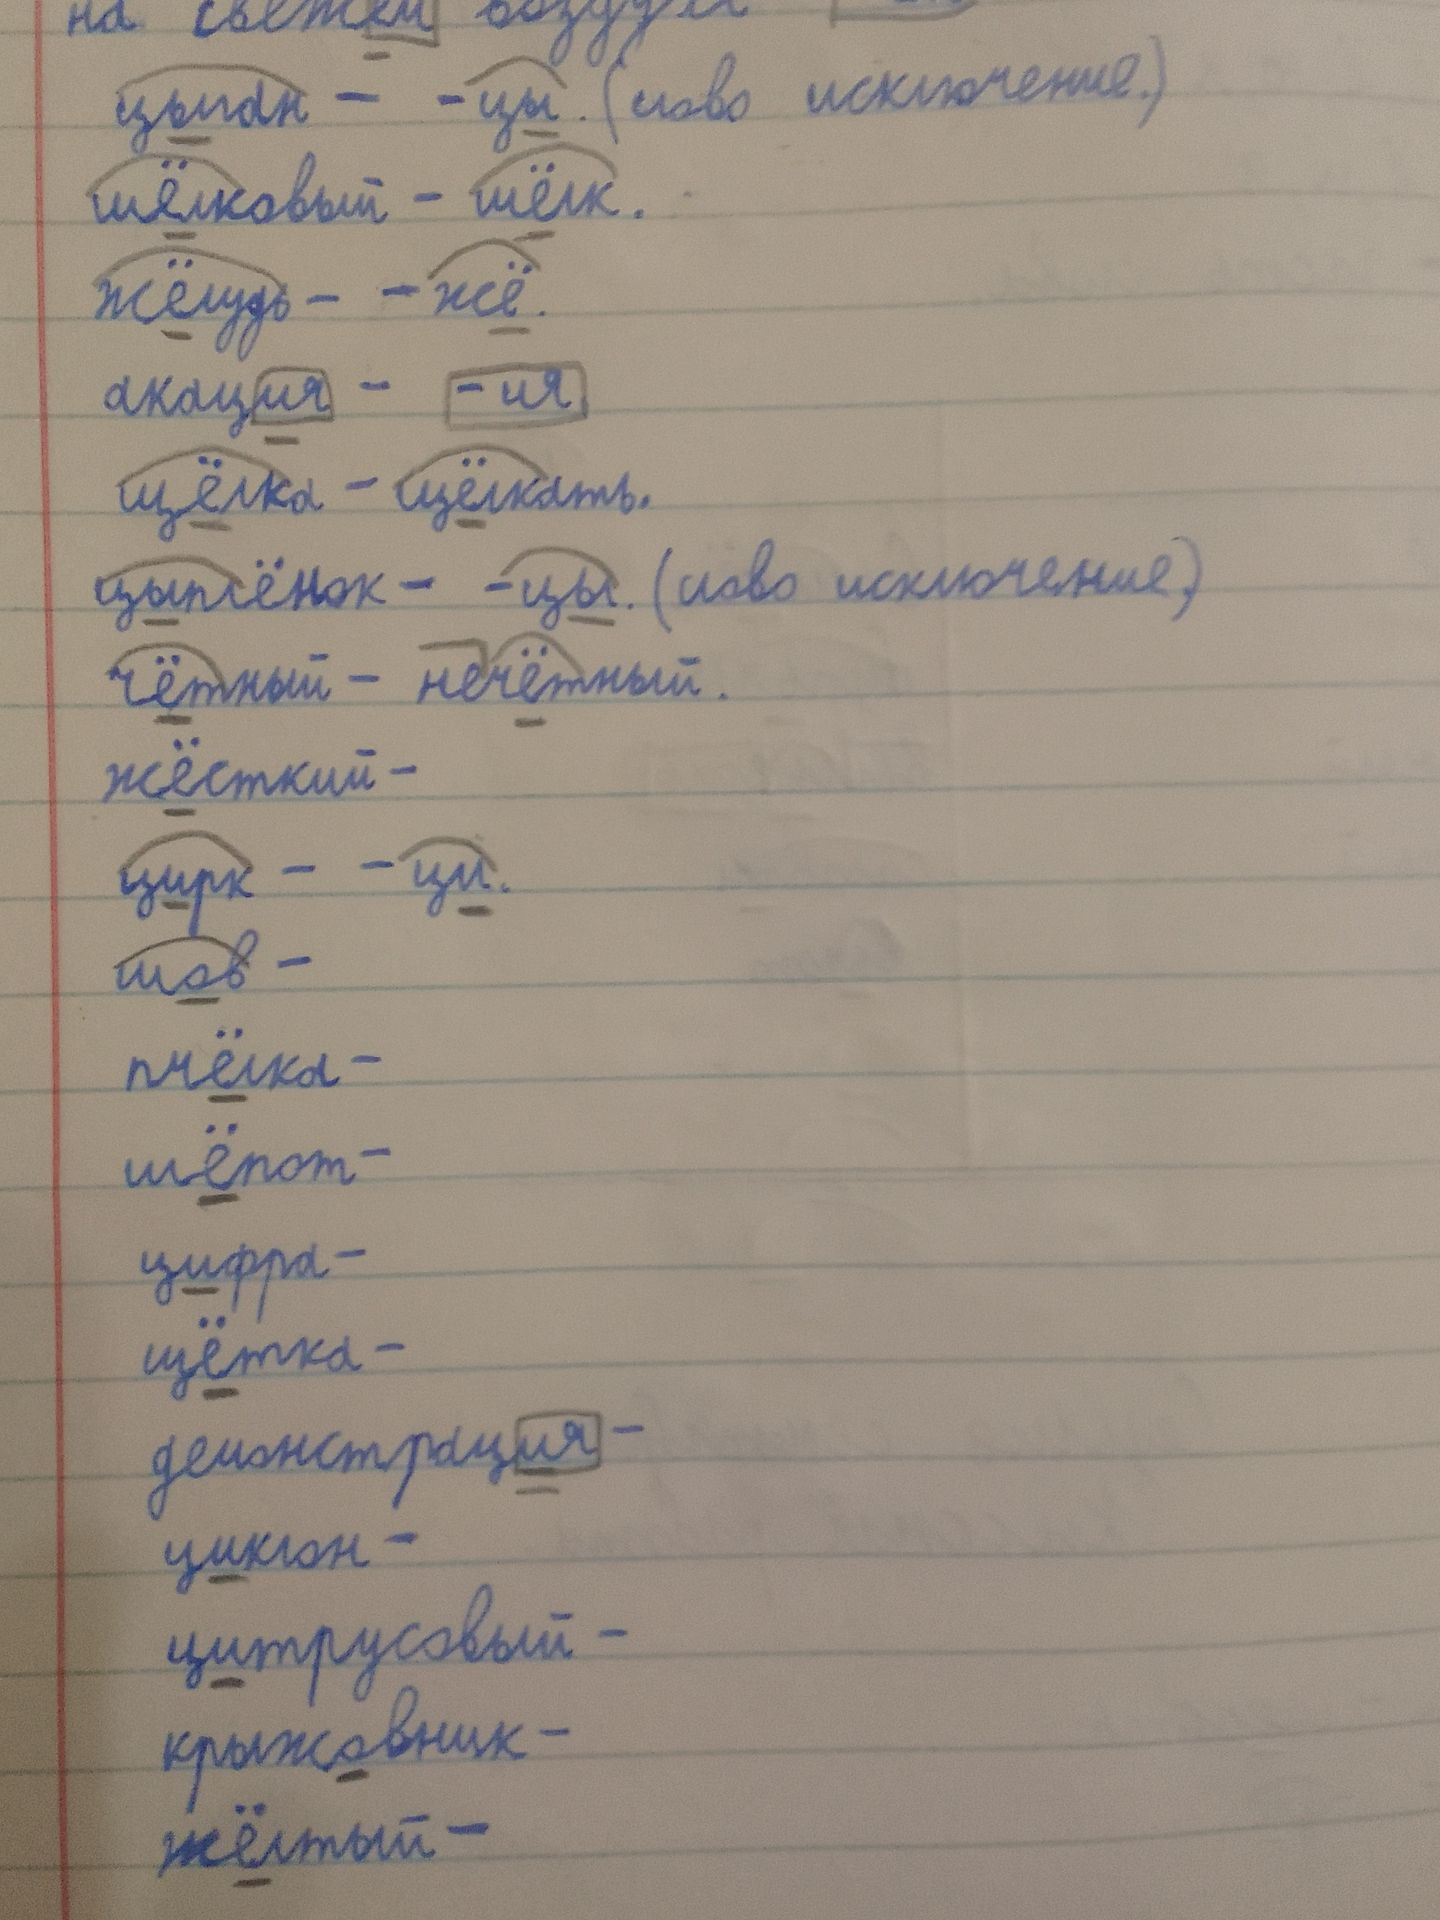 на свежем воздухе
цыган - -цы. (слово исключение.)
шёлковый - шёлк.
жёлудь - -жё.
акация - -ия
щёлка - щёлкать.
цыплёнок - -цы. (слово исключение.)
чётный - нечётный.
жёсткий -
цирк - -ци.
шов -
пчёлка -
шёпот -
цифра -
щётка -
демонстрация -
циклон -
цитрусовый -
крыжовник -
жёлтый -